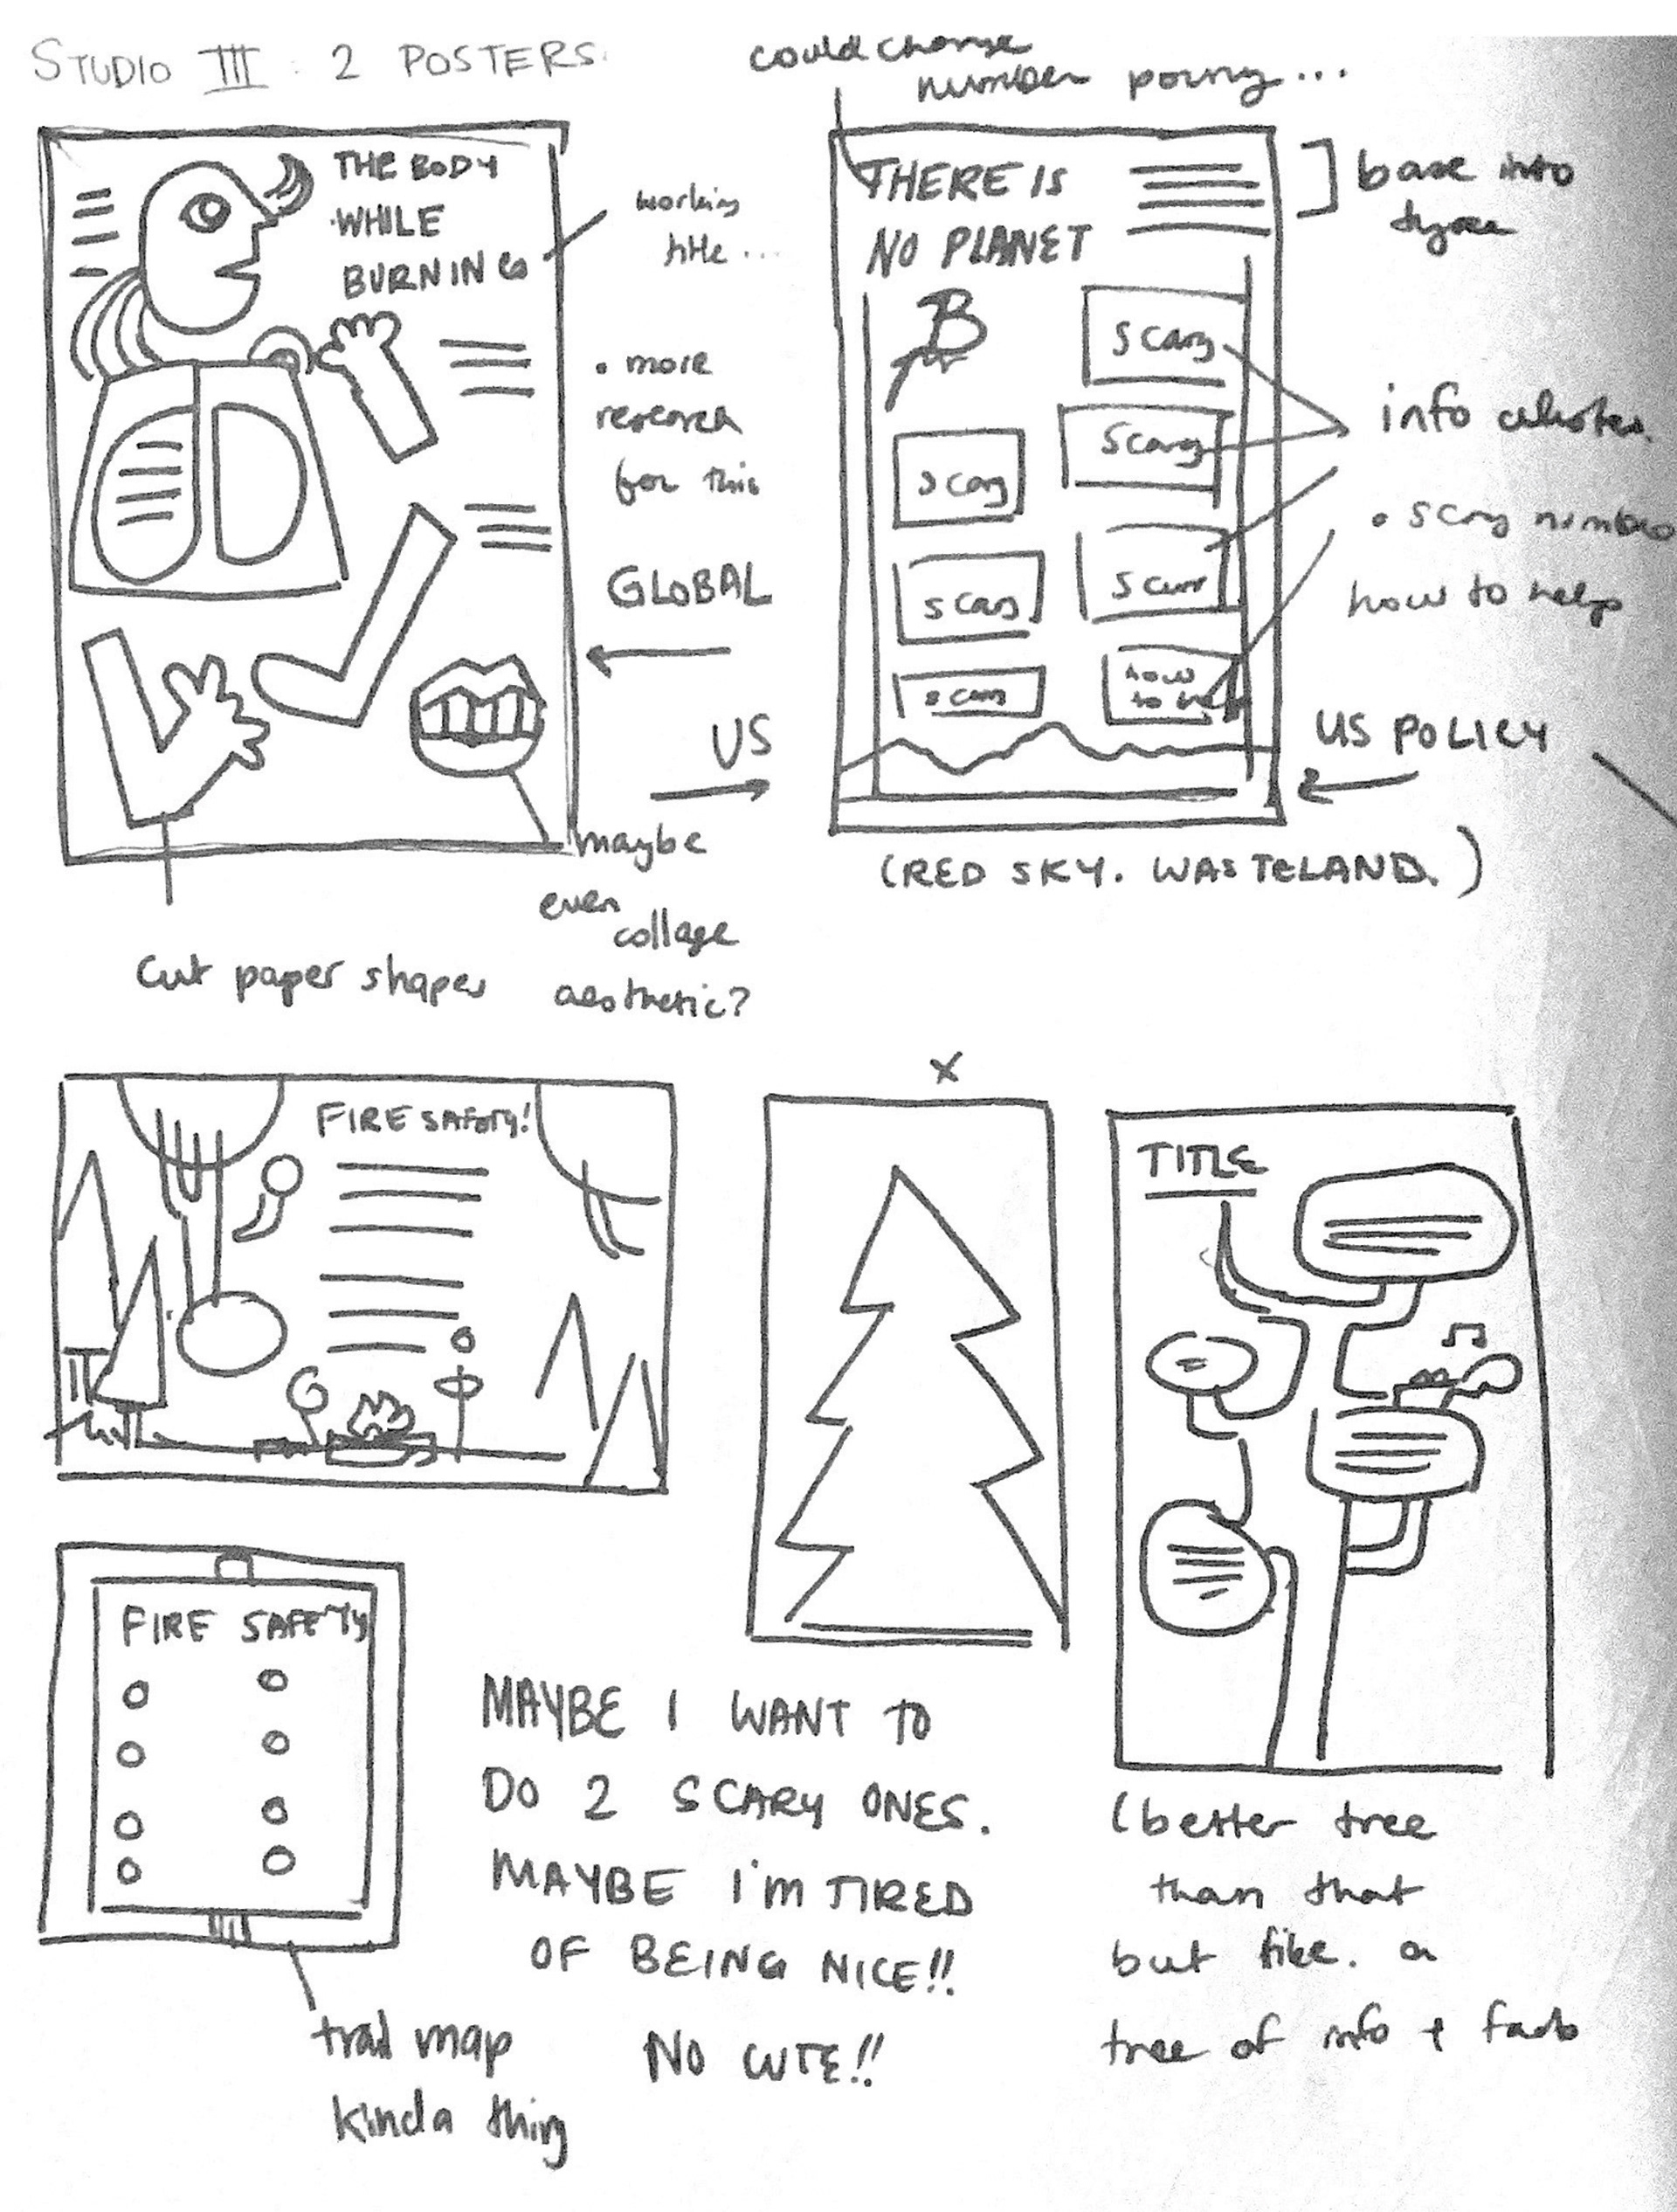 STUDIO III : 2 POSTERS.
could change
number
THE BODY
WHILE
BURNING
working
title ...
• more
research
for this
GLOBAL
US
maybe
even
collage
aesthetic?
cut paper shapes
THERE IS
NO PLANET
B
scary
scary
scary
scary
scary
scary
how
to help
base info
info clusters.
• scary numbers
how to help
US POLICY
(RED SKY. WASTELAND.)
FIRE SAFETY!
X
TITLE
FIRE SAFETY
trail map
kinda thing
MAYBE I WANT TO
DO 2 SCARY ONES.
MAYBE I'M TIRED
OF BEING NICE!!
NO CUTE!!
(better tree
than that
but like. a
tree of info + facts